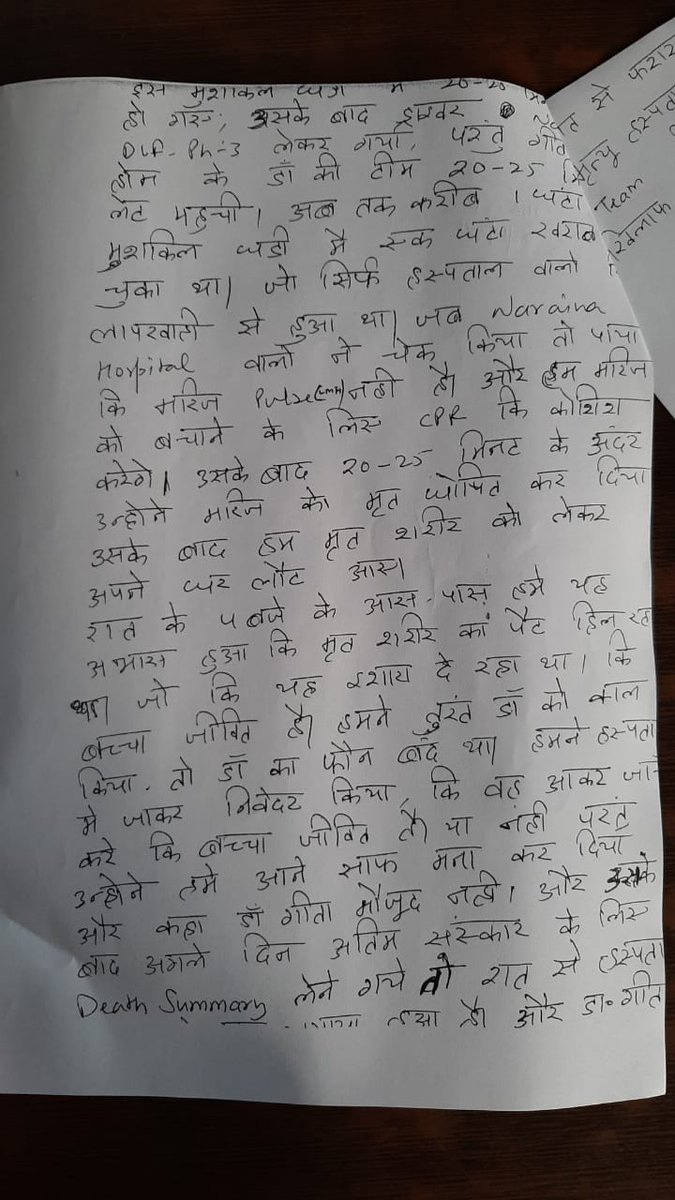 इस मुशकिल घडी में 20-25
हो गए, उसके बाद ड्राइवर
DLF-Ph-3 लेकर गया, परंतु गीत
होम के डॉ की टीम 20-25 मि
लेट पहुची। अब तक करीब 1 घंटा
मुशकिल घडी मै एक घंटा खराब
चुका था। जो सिर्फ हस्पताल वालो
लापरवाही से हुआ था। जब Naraina
Hospital वालो ने चेक किया तो पाया
कि मरिज Pulse नही है। और हम मरिज
को बचाने के लिए CPR कि कोशिश
करेगे। उसके बाद 20-25 मिनट के अंदर
उन्होने मरिज को मृत घोषित कर दिया
उसके बाद हम मृत शरीर को लेकर
अपने घर लौट आए।
रात के 4 बजे के आस-पास हमे यह
अभास हुआ कि मृत शरीर का पैट हिल रहा
था। जो कि यह इशारा दे रहा था। कि
बच्चा जीवित है। हमने तुरंत डॉ को काल
किया. तो डॉ का फौन बंद था। हमने हस्पता
मे जाकर निवेदन किया, कि वह आकर जा
करे कि बच्चा जीवित है। या नंही परंतु
उन्होने हमे आने साफ मना कर दिया
और कहा डॉ गीता मौजूद नही। और उसके
बाद अगले दिन अतिम संस्कार के लिए
Death Summary लेने गये तो रात से हस्पता
हुआ है। और डा॰ गीत
से फरार
हस्पता
Team
खिलाफ